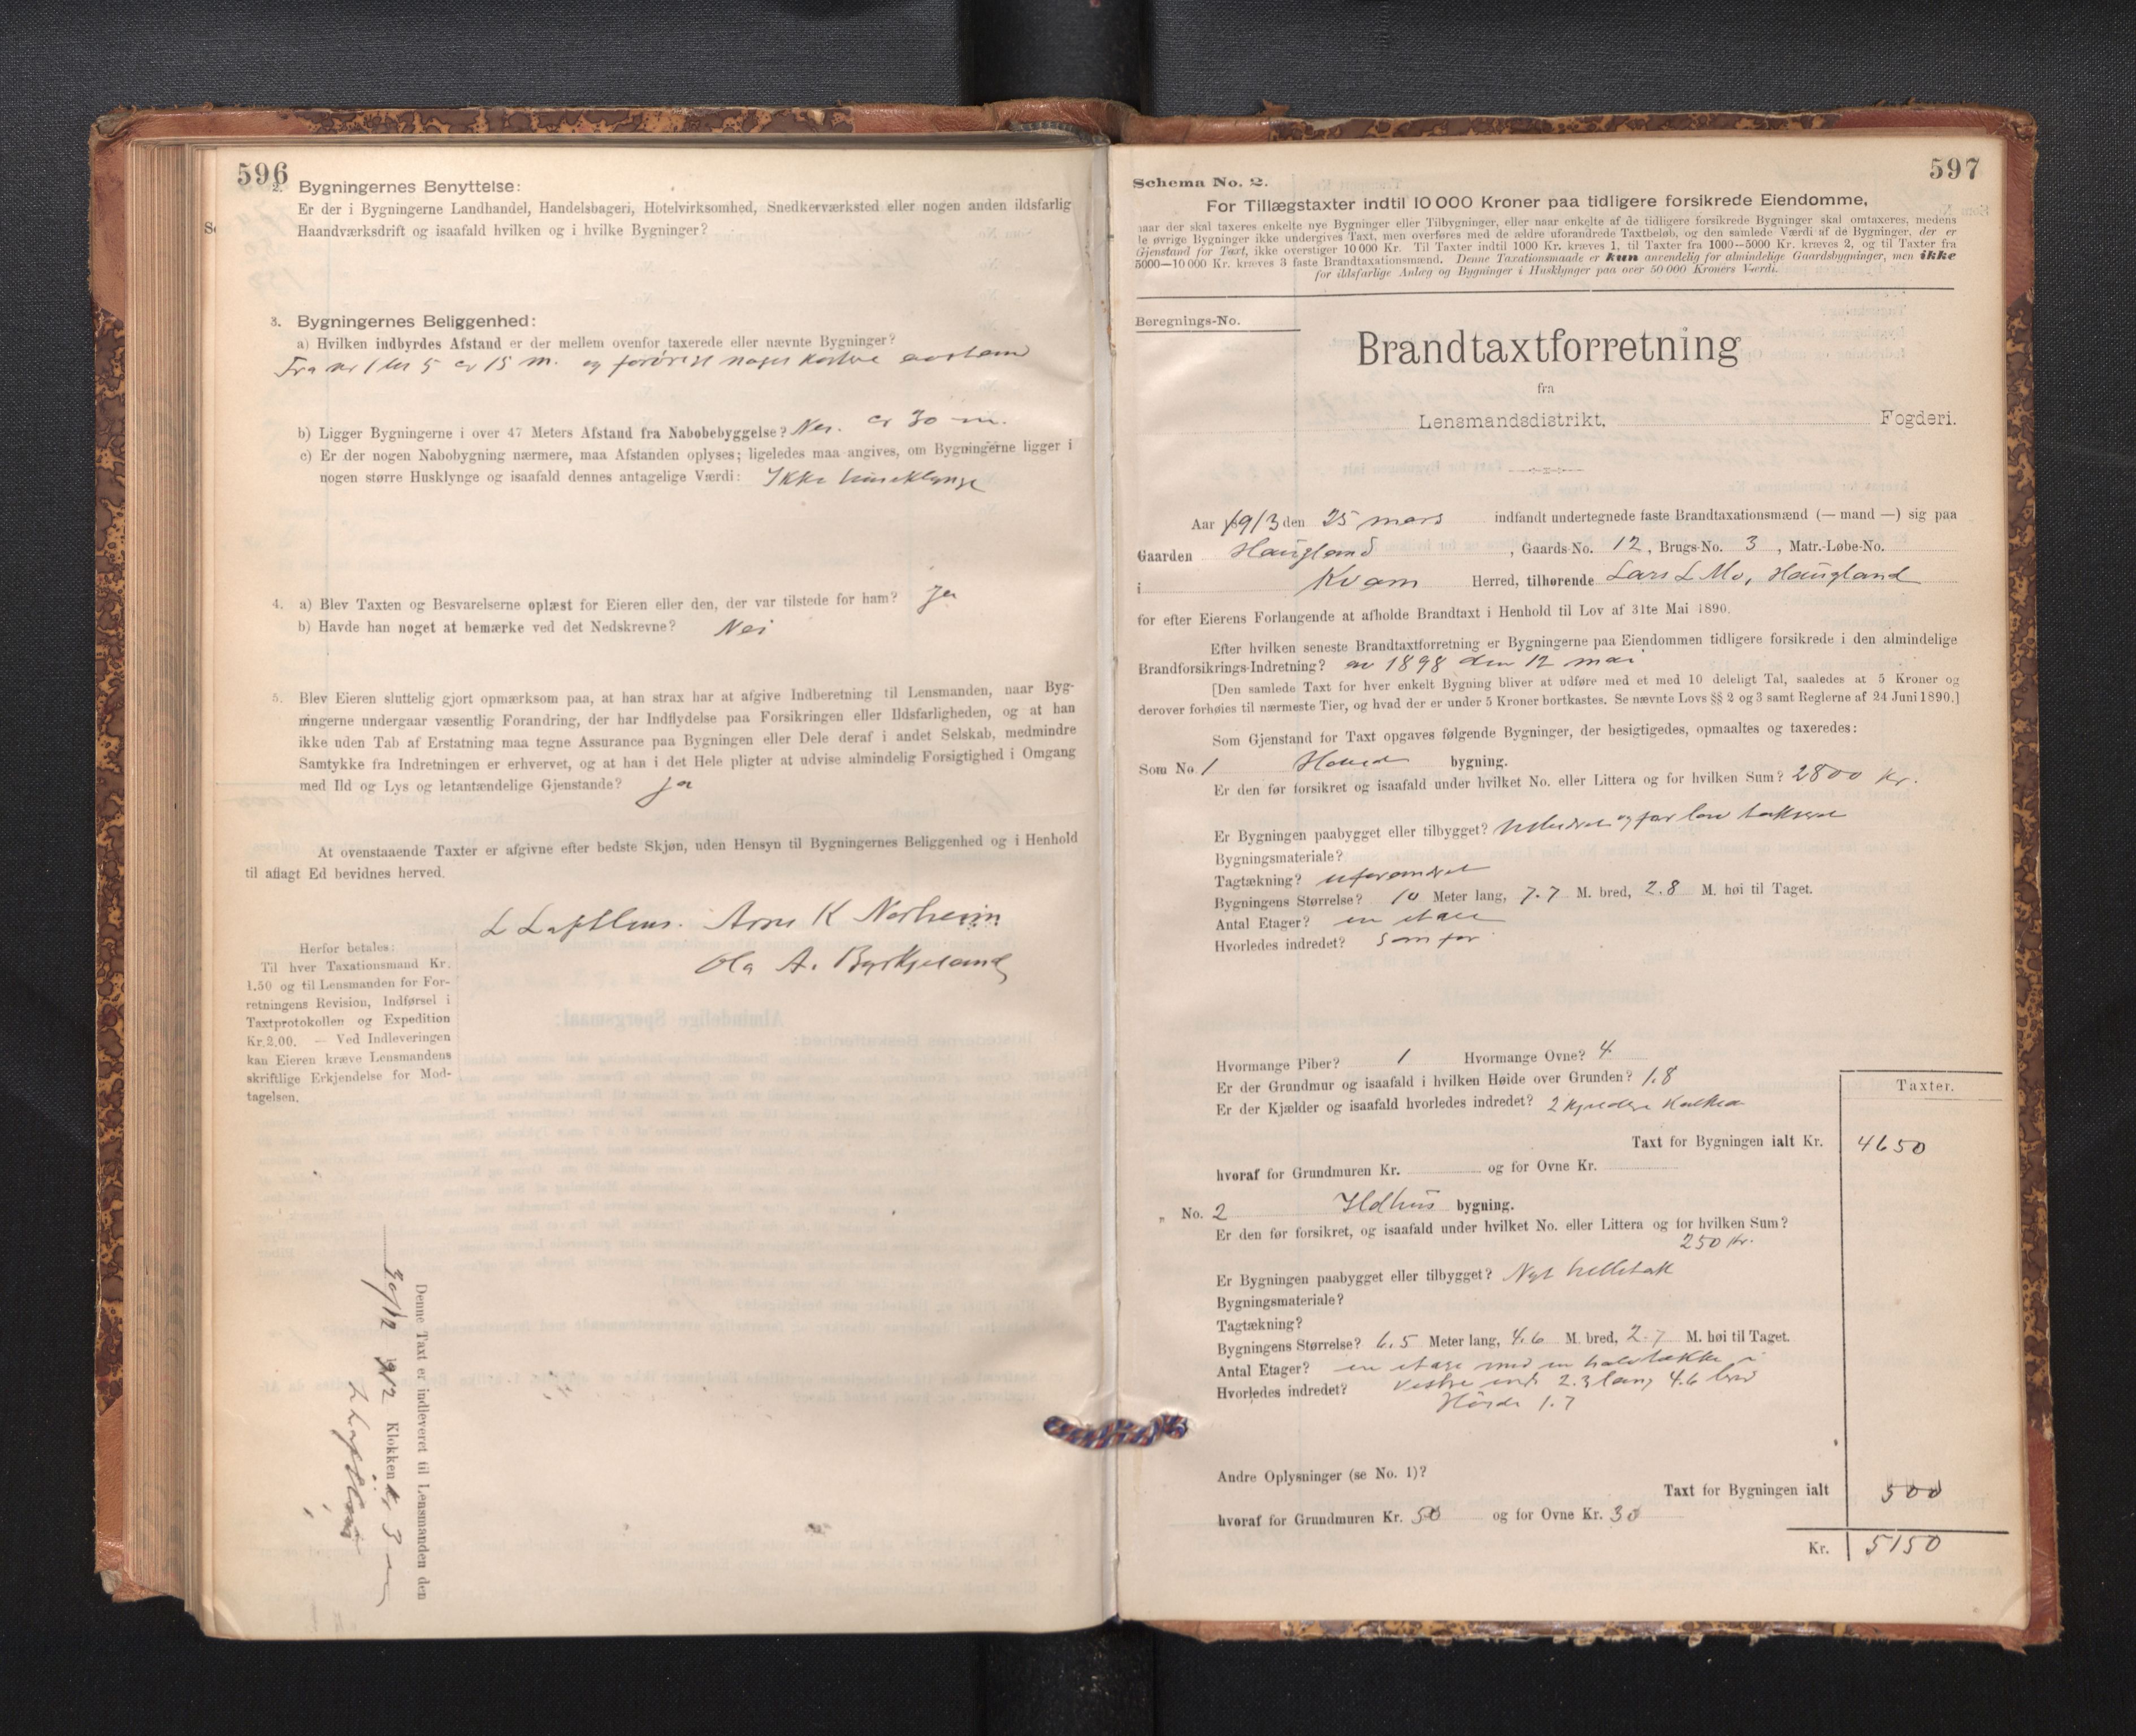 596
2. Bygningernes Benyttelse:
Er der i Bygningerne Landhandel, Handelsbageri, Hotelvirksomhed, Snedkerværksted eller nogen anden ildsfarlig
Haandværksdrift og isaafald hvilken og i hvilke Bygninger?
3. Bygningernes Beliggenhed:
a) Hvilken indbyrdes Afstand er der mellem ovenfor taxerede eller nævnte Bygninger?
Fra nr 1 til 5 er 15 m. og forøvrigt noget kortere avstand
b) Ligger Bygningerne i over 47 Meters Afstand fra Nabobebyggelse? Nei. er 30 m.
c) Er der nogen Nabobygning nærmere, maa Afstanden oplyses; ligeledes maa angives, om Bygningerne ligger i
nogen større Husklynge og isaafald dennes antagelige Værdi: Ikke huseklynge
4. a) Blev Taxten og Besvarelserne oplæst for Eieren eller den, der var tilstede for ham? Ja
b) Havde han noget at bemærke ved det Nedskrevne? Nei
5. Blev Eieren sluttelig gjort opmærksom paa, at han strax har at afgive Indberetning til Lensmanden, naar Byg-
ningerne undergaar væsentlig Forandring, der har Indflydelse paa Forsikringen eller Ildsfarligheden, og at han
ikke uden Tab af Erstatning maa tegne Assurance paa Bygningen eller Dele deraf i andet Selskab, medmindre
Samtykke fra Indretningen er erhvervet, og at han i det Hele pligter at udvise almindelig Forsigtighed i Omgang
med Ild og Lys og letantændelige Gjenstande? Ja
At ovenstaaende Taxter er afgivne efter bedste Skjøn, uden Hensyn til Bygningernes Beliggenhed og i Henhold
til aflagt Ed bevidnes herved.
Arne K Norheim
Ola A. Byrkjeland
Herfor betales:
Til hver Taxationsmand Kr.
1.50 og til Lensmanden for For-
retningens Revision, Indførsel i
Taxtprotokollen og Expedition
Kr. 2.00. — Ved Indleveringen
kan Eieren kræve Lensmandens
skriftlige Erkjendelse for Mod-
tagelsen.
Denne Taxt er indleveret til Lensmanden den
30/12 1912 Klokken 3
597
Schema No. 2.
For Tillægstaxter indtil 10 000 Kroner paa tidligere forsikrede Eiendomme,
naar der skal taxeres enkelte nye Bygninger eller Tilbygninger, eller naar enkelte af de tidligere forsikrede Bygninger skal omtaxeres, medens
le øvrige Bygninger ikke undergives Taxt, men overføres med de ældre uforandrede Taxtbeløb, og den samlede Værdi af de Bygninger, der er
Gjenstand for Taxt, ikke overstiger 10 000 Kr. Til Taxter indtil 1000 Kr. kræves 1, til Taxter fra 1000—5000 Kr. kræves 2, og til Taxter fra
5000—10 000 Kr. kræves 3 faste Brandtaxationsmænd. Denne Taxationsmaade er kun anvendelig for almindelige Gaardsbygninger, men ikke
for ildsfarlige Anlæg og Bygninger i Husklynger paa over 50 000 Kroners Værdi.
Beregnings-No.
Brandtaxtforretning
fra
Lensmandsdistrikt, Fogderi.
Aar 1913 den 25 mars indfandt undertegnede faste Brandtaxationsmænd (— mand —) sig paa
Gaarden Haugland, Gaards-No. 12, Brugs-No. 3, Matr.-Løbe-No.
i Kvam Herred, tilhørende Lars L Mo, Haugland
for efter Eierens Forlangende at afholde Brandtaxt i Henhold til Lov af 31te Mai 1890.
Efter hvilken seneste Brandtaxtforretning er Bygningerne paa Eiendommen tidligere forsikrede i den almindelige
Brandforsikrings-Indretning? av 1898 den 12 mai
[Den samlede Taxt for hver enkelt Bygning bliver at udføre med et med 10 deleligt Tal, saaledes at 5 Kroner og
derover forhøies til nærmeste Tier, og hvad der er under 5 Kroner bortkastes. Se nævnte Lovs §§ 2 og 3 samt Reglerne af 24 Juni 1890.]
Som Gjenstand for Taxt opgaves følgende Bygninger, der besigtigedes, opmaaltes og taxeredes:
Som No. 1 Hoved bygning.
Er den før forsikret og isaafald under hvilket No. eller Littera og for hvilken Sum? 2800 kr.
Er Bygningen paabygget eller tilbygget? Utbedret og for lav taksert
Bygningsmateriale?
Tagtækning? uforandret
Bygningens Størrelse? 10 Meter lang, 7.7 M. bred, 2.8 M. høi til Taget.
Antal Etager? en etage
Hvorledes indredet? som før
Hvormange Piber? 1 Hvormange Ovne? 4
Er der Grundmur og isaafald i hvilken Høide over Grunden? 1.8
Er der Kjælder og isaafald hvorledes indredet? 2 kjeldere kalket
Taxter.
Taxt for Bygningen ialt Kr. 4650
hvoraf for Grundmuren Kr. og for Ovne Kr.
„ No. 2 Ildhus bygning.
Er den før forsikret, og isaafald under hvilket No. eller Littera og for hvilken Sum?
250 kr.
Er Bygningen paabygget eller tilbygget? Nyt helletak
Bygningsmateriale?
Tagtækning?
Bygningens Størrelse? 6.5 Meter lang, 4.6 M. bred, 2.7 M. høi til Taget.
Antal Etager? en etage med en halvtække i
Hvorledes indredet? vestre ende 2.3 lang 4.6 bred
Høide 1.7
Andre Oplysninger (se No. 1)?
Taxt for Bygningen ialt 500
hvoraf for Grundmuren Kr. 50 og for Ovne Kr. 30
Kr. 5150